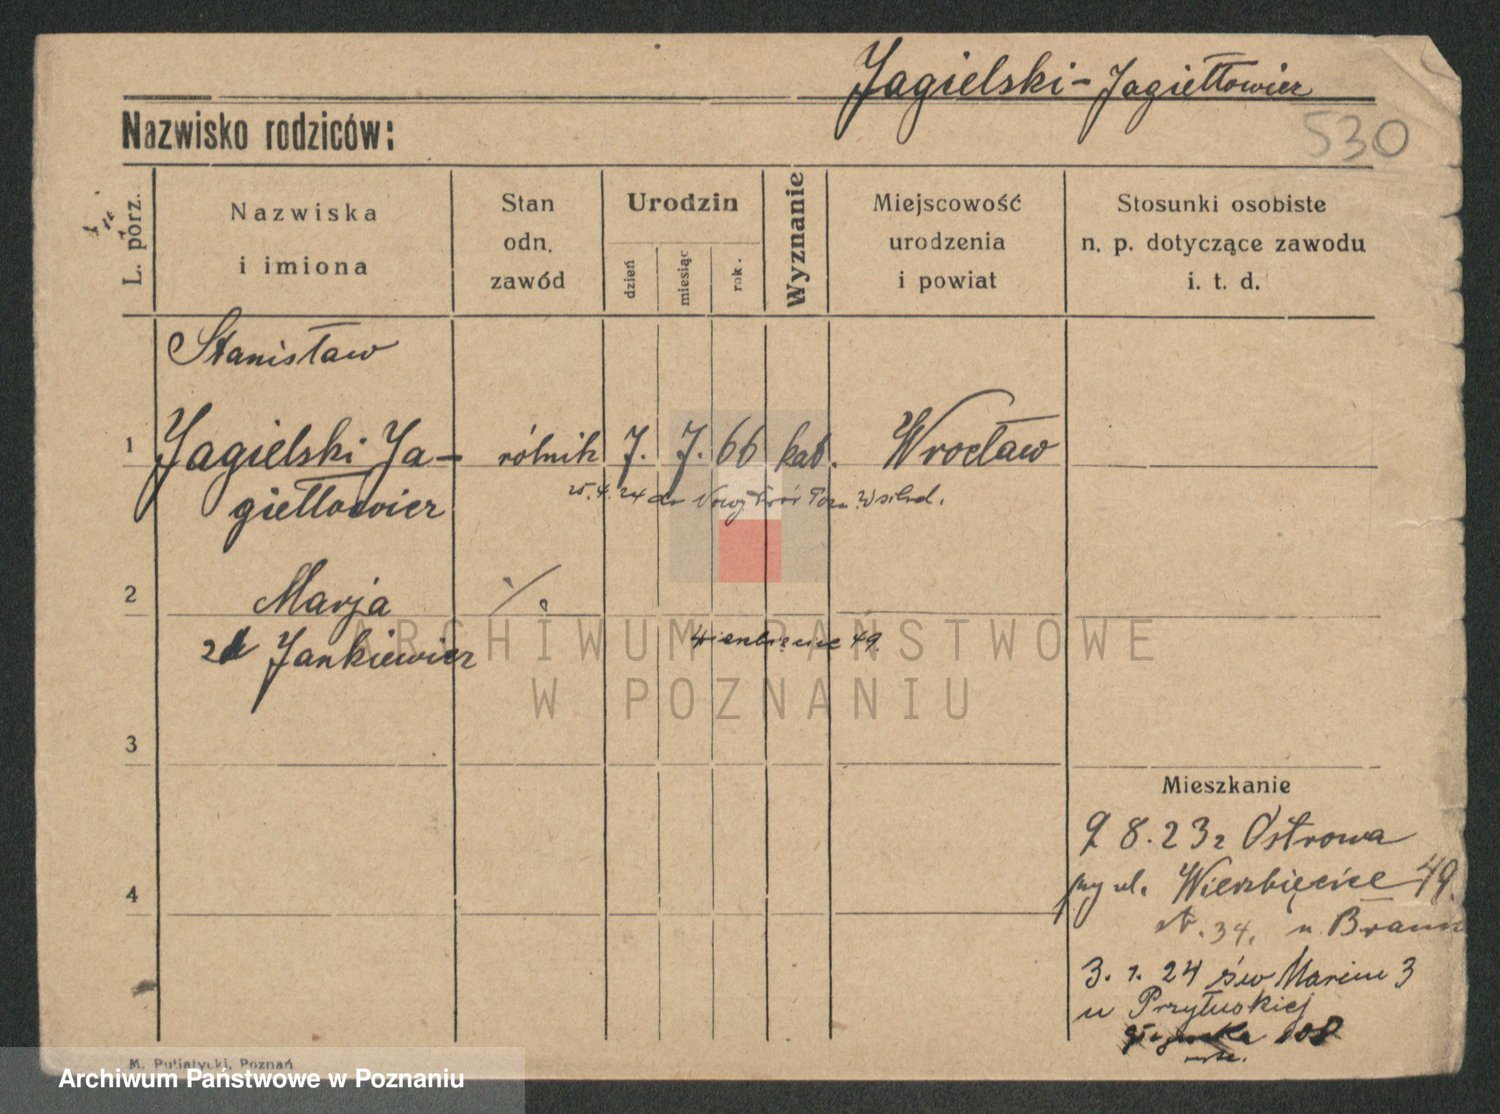 Jagielski-Jagiełłowicz
Nazwisko rodziców:
530
L. porz.
Nazwiska
i imiona
Stan
odn.
zawód
Urodzin
dzień
miesiąc
rok.
Wyznanie
Miejscowość
urodzenia
i powiat
Stosunki osobiste
n. p. dotyczące zawodu
i. t. d.
Stanisław
1 Jagielski Ja- rólnik 7. 7. 66 kat. Wrocław
giełłowicz
25.4.24 do Nowy
2 Marja
Jankiewicz
49.
ARCHIWUM PAŃSTWOWE
W POZNANIU
3
Mieszkanie
9 8.23 z Ostrowa
przy ul. Wierzbięcice 49.
4
34. u Braun
3.1.24 św Marcin 3
u Przyłuskiej
108
M. Putiatycki, Poznań
Archiwum Państwowe w Poznaniu